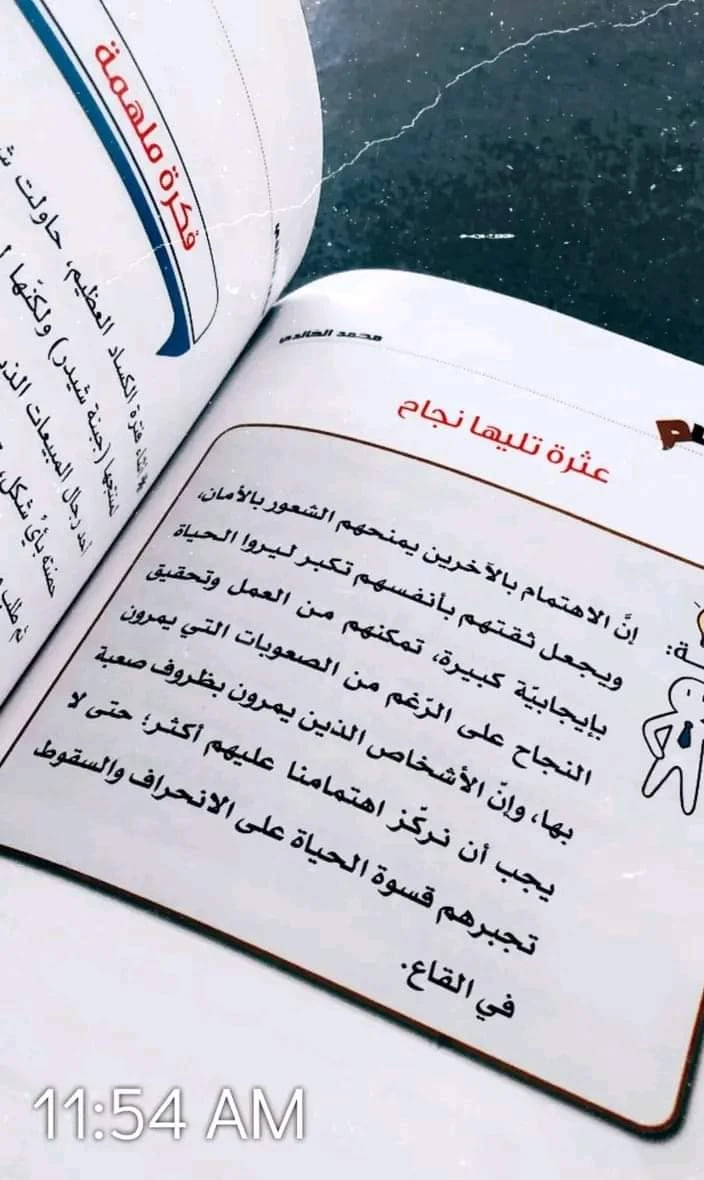 محمد الخالدي
عثرة تليها نجاح
إنَّ الاهتمام بالآخرين يمنحهم الشعور بالأمان،
ويجعل ثقتهم بأنفسهم تكبر ليروا الحياة
بإيجابيّة كبيرة، تمكنهم من العمل وتحقيق
النجاح على الرّغم من الصعوبات التي يمرون
بها، وإنّ الأشخاص الذين يمرون بظروف صعبة
يجب أن نركّز اهتمامنا عليهم أكثر؛ حتى لا
تجبرهم قسوة الحياة على الانحراف والسقوط
في القاع.
فكرة ملهمة
فترة الكساد العظيم، حاولت
(جبنة شيدر) ولكنّها
رجال المبيعات
بأيّ شكل،
ثم طلب
11:54 AM